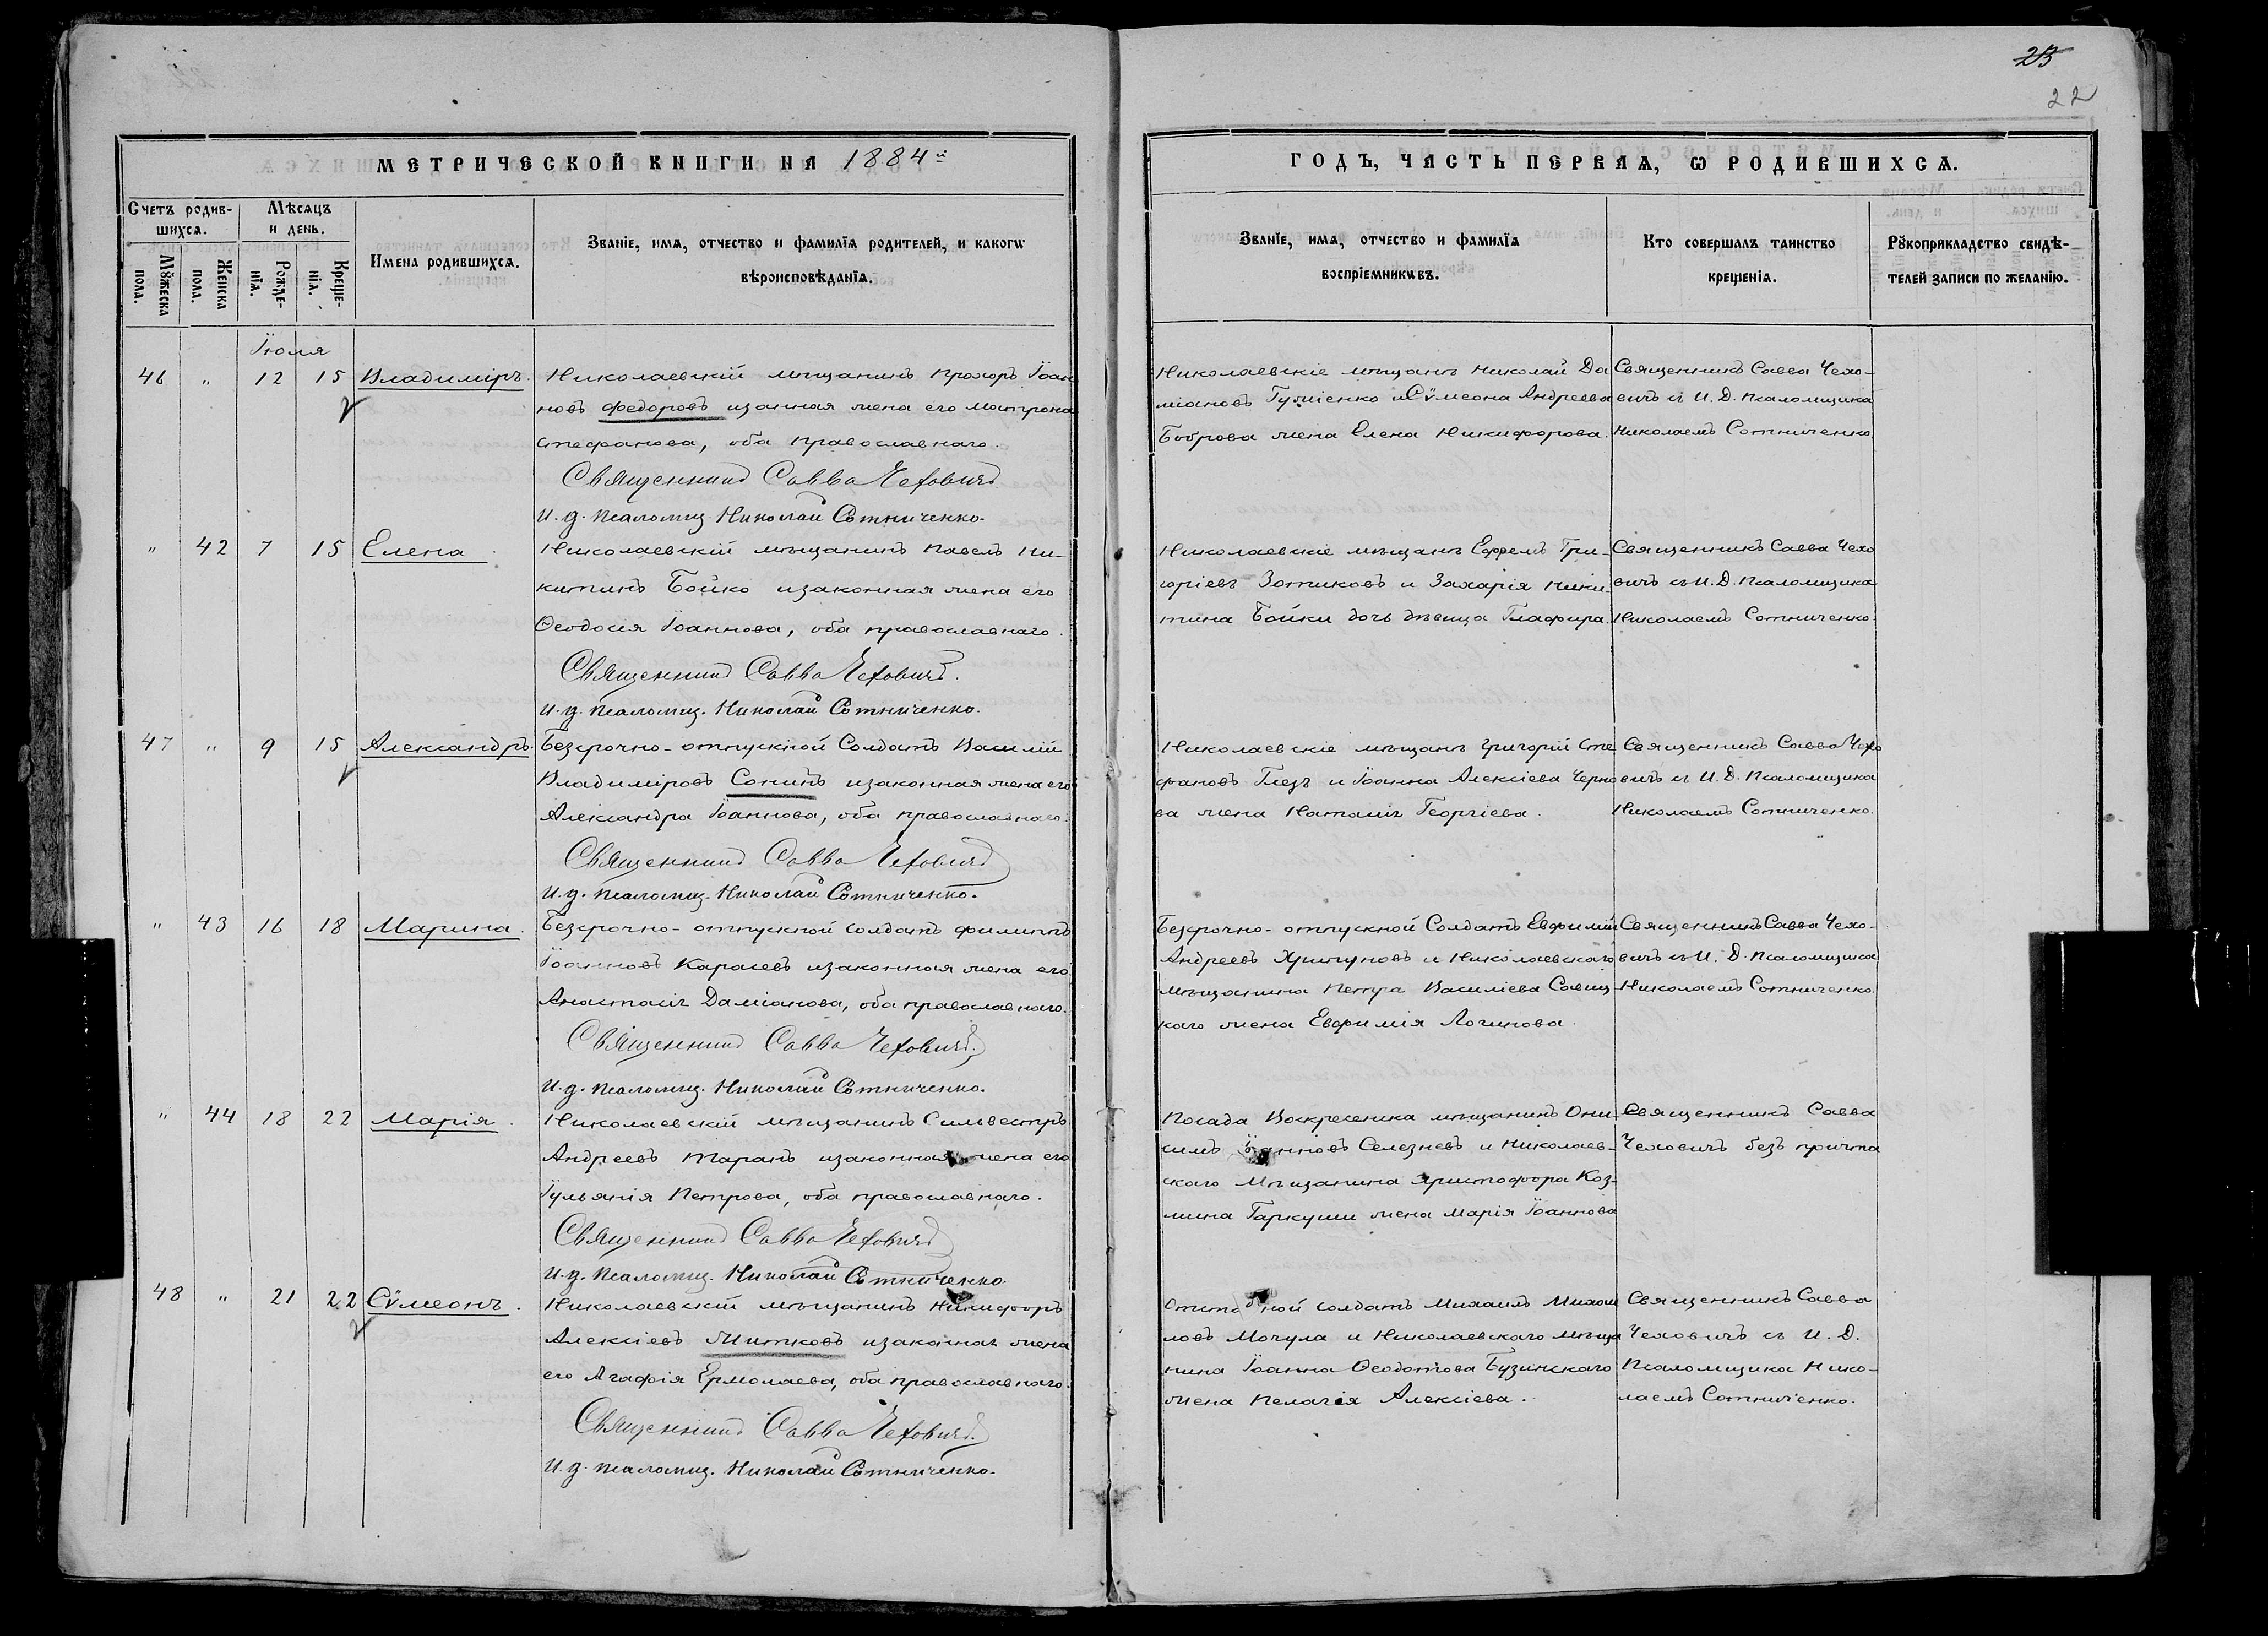 23
22
МЕТРИЧЕСКОЙ КНИГИ НА 1884й
ГОДЪ, ЧАСТЬ ПЕРВАЯ, Ѡ РОДИВШИХСѦ.
Счетъ родив-
шихсѧ.
Мѣсяцъ
и день.
Мꙋжеска
пола.
Женска
пола.
Рожде-
нїѧ.
Креще-
нїѧ.
Имена родившихсѧ.
Званїе, имѧ, отчество и фамилїѧ родителей, и какогѡ
вѣроисповѣданїѧ.
Званїе, имѧ, отчество и фамилїѧ
воспрїемникѡвъ.
Кто совершалъ таинство
крещенїѧ.
Рꙋкоприкладство свидѣ-
телей записи по желанїю.
Іюля
46 " 12 15 Владиміръ.
Николаевскій мѣщанинъ Прохоръ Іоан
новъ Федоровъ изаконная жена его Матрона
Стефанова, оба православнаго.
Священникъ Савва Чеховичъ
И. д. псаломщ. Николай Сотниченко.
Николаевскіе мѣщане Николай Да
міановъ Гуміенко и Сѵмеона Андреева
Боброва жена Елена Никифорова.
Священникъ Савва Чехо-
вичъ съ И. Д. Псаломщика
Николаемъ Сотниченко
" 42 7 15 Елена.
Николаевскій мѣщанинъ Павелъ Ни-
китинъ Бойко изаконная жена его
Ѳеодосія Іоаннова, оба православнаго.
Священникъ Савва Чеховичъ.
И. д. псаломщ. Николай Сотниченко.
Николаевскіе мѣщане Ефремъ Гри-
горіевъ Зотиковъ и Захарія Ники-
тина Бойки дочь дѣвица Глафира.
Священникъ Савва Чехо
вичъ съ И. Д. Псаломщика
Николаемъ Сотниченко.
47 " 9 15 Александръ.
Безсрочно-отпускной Солдатъ Василій
Владиміровъ Сонинъ изаконная жена его
Александра Іоаннова, оба православнаго.
Священникъ Савва Чеховичъ
И. д. псаломщ. Николай Сотниченко.
Николаевскіе мѣщане Григорій Сте
фановъ Глезъ и Іоанна Алексіева Черно
ва жена Наталія Георгіева.
Священникъ Савва Чехо
вичъ съ И. Д. Псаломщика
Николаемъ Сотниченко.
" 43 16 18 Марина.
Безсрочно-отпускной солдатъ Филиппъ
Іоанновъ Карасевъ изаконная жена его
Анастасія Даміанова, оба православнаго.
Священникъ Савва Чеховичъ.
И. д. псаломщ. Николай Сотниченко.
Безсрочно-отпускной Солдатъ Евфимій
Андреевъ Хрипуновъ и Николаевскаго
мѣщанина Петра Василіева Савиц-
каго жена Евфимія Логинова.
Священникъ Савва Чехо-
вичъ съ И. Д. Псаломщика
Николаемъ Сотниченко.
" 44 18 22 Марія.
Николаевскій мѣщанинъ Сильвестръ
Андреевъ Таранъ изаконная жена его
Іульянія Петрова, оба православнаго.
Священникъ Савва Чеховичъ
И. д. псаломщ. Николай Сотниченко.
Посада Воскресенска мѣщанинъ Они-
симъ Іоанновъ Селезневъ и Николаев-
скаго Мѣщанина Христофора Коз-
мина Гаркуши жена Марія Іоаннова
Священникъ Савва
Чеховичъ безъ причта
48 " 21 22 Сѵмеонъ.
Николаевскій мѣщанинъ Никифоръ
Алексіевъ Митковъ изаконная жена
его Агафія Ермолаева, оба православнаго.
Священникъ Савва Чеховичъ.
И. д. псаломщ. Николай Сотниченко.
солдатъ Михаилъ Михаи
ловъ Мочула и Николаевскаго мѣща
нина Іоанна Ѳеодотова Бузинскаго
жена Пелагія Алексіева.
Священникъ Савва
Чеховичъ съ И. Д.
Псаломщика Нико-
лаемъ Сотниченко.